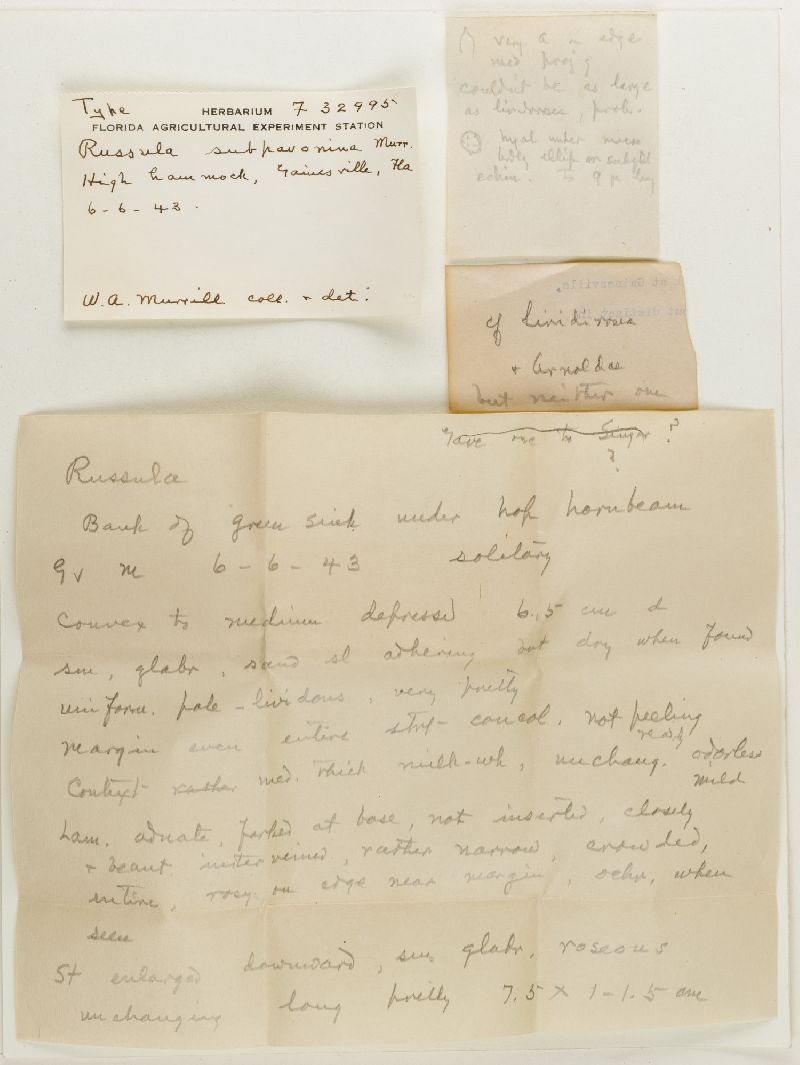 Type HERBARIUM F 32995
FLORIDA AGRICULTURAL EXPERIMENT STATION
Russula subpavonina Murr.
High hammock, Gainesville, Fla
6-6-43.
W.A. Murrill coll. & det.
very a edge
med
couldn't be as large
as lividirosea, prob.
hyal under micro
ellip or subglob
echin. 9 µ long
at Gainesville.
but distinct
cf lividirosea
& Arnoldae
but neither one
Gave one to Singer ?
?
Russula
Bank of green sink under hop hornbeam
Gv M 6-6-43 solitary
Convex to medium depressed 6.5 cm d
sm, glabr, sand sl adhering but dry when found
uniform. pale-lividous, very pretty
margin even entire concol. not peeling
readily
Context rather med. thick milk-wh, unchang. odorless
mild
Lam. adnate, forked at base, not inserted, closely
& beaut interveined, rather narrow, crowded,
entire, rosy on edge near margin, ochr, when
seen
St enlarged downward, sm, glabr, roseous
unchanging long pretty 7.5 x 1-1.5 cm